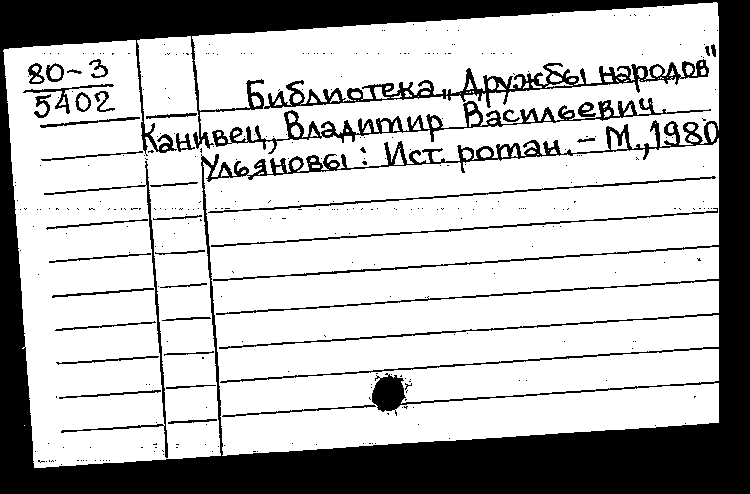 80-3
5402
Библиотека „Дружбы народов"
Канивец, Владимир Васильевич.
Ульяновы : Ист. роман. – М., 1980